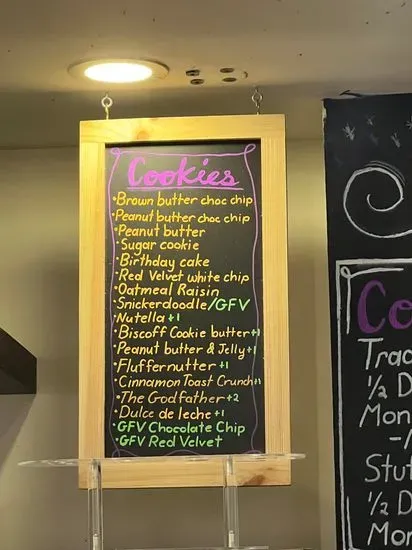 Cookies
• Brown butter choc chip
• Peanut butter choc chip
• Peanut butter
• Sugar cookie
• Birthday cake
• Red Velvet white chip
• Oatmeal Raisin
• Snickerdoodle/GFV
• Nutella +1
• Biscoff Cookie butter +1
• Peanut butter & Jelly +1
• Fluffernutter +1
• Cinnamon Toast Crunch +1
• The Godfather +2
• Dulce de leche +1
• GFV Chocolate Chip
• GFV Red Velvet
Co
Trad
1/2 D
Mon
Stuf
1/2 D
Mor